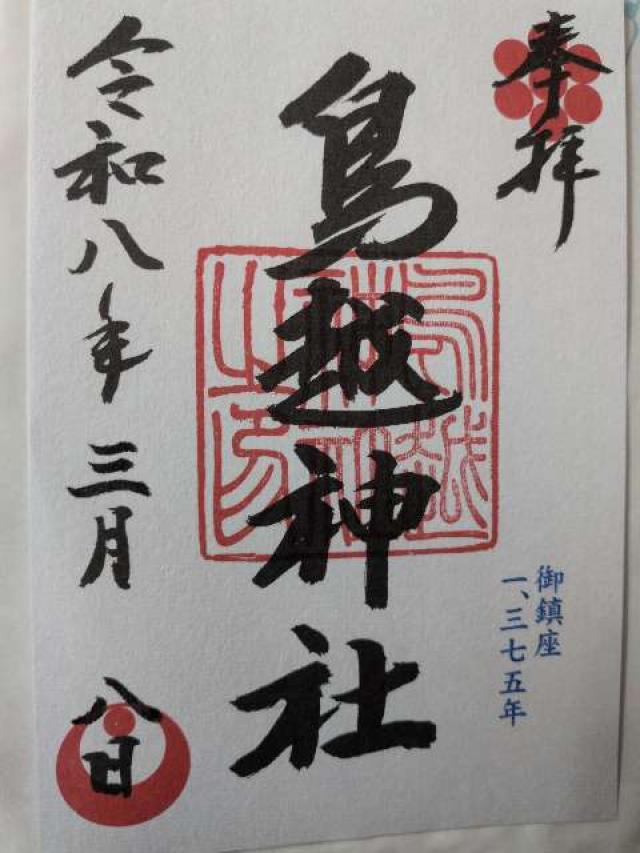 奉拝
御鎮座
一、三七五年
鳥越神社
鳥越
神社
之印
令和八年三月八日